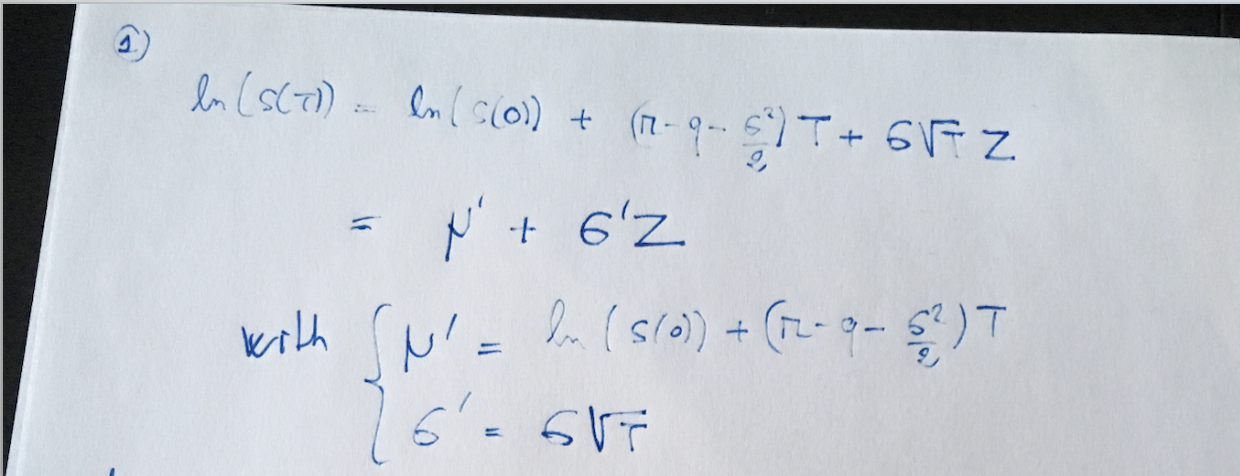 1)
ln(S(T)) = ln(S(0)) + (r-q-σ²/2)T + σ√T Z
= μ' + σ'Z
with { μ' = ln(S(0)) + (r-q-σ²/2)T
σ' = σ√T